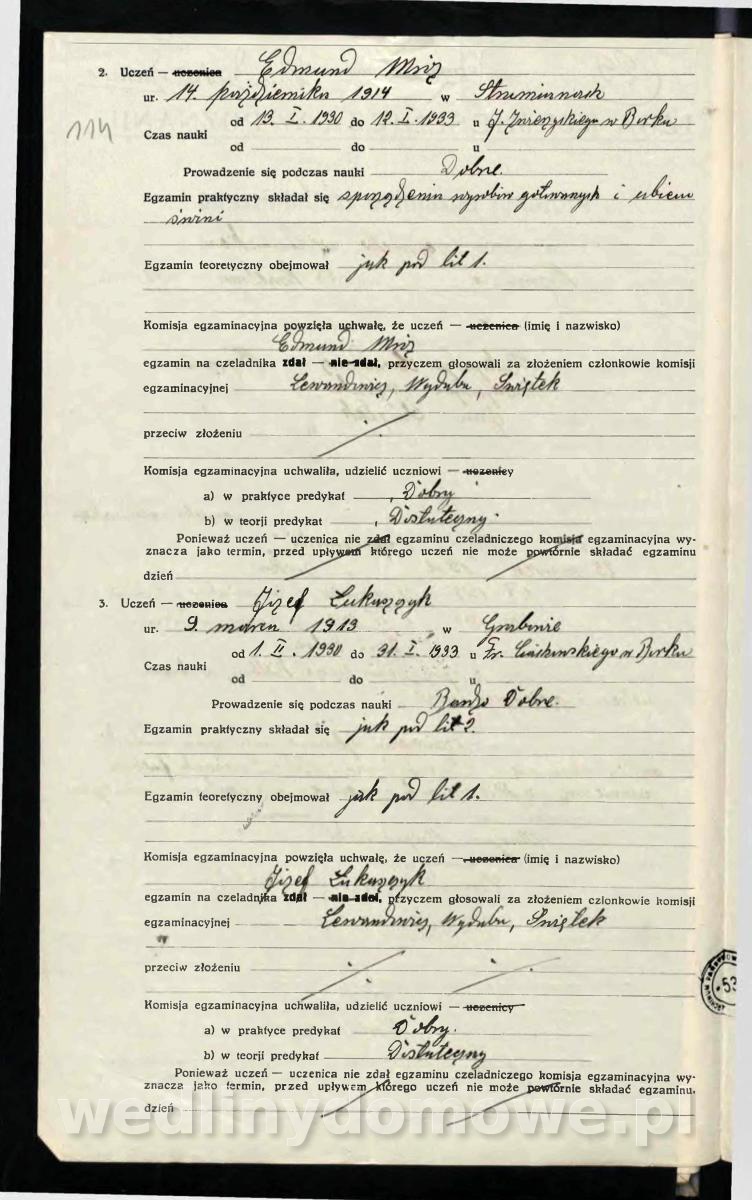 114
2. Uczeń — uczenica Edmund Mróz
ur. 14. października 1914 w
od 13. I. 1930 do 12. I. 1933 u J. w Borku
Czas nauki
od do u
Prowadzenie się podczas nauki Dobre.
Egzamin praktyczny składał się sporządzenia wyrobów gotowanych i ubiciu
świni
Egzamin teoretyczny obejmował jak pod lit 1.
Komisja egzaminacyjna powzięła uchwałę, że uczeń — uczenica (imię i nazwisko)
Edmund Mróz
egzamin na czeladnika zdał — nie zdał, przyczem głosowali za złożeniem członkowie komisji
egzaminacyjnej Lewandowicz, Wyduba, Świątek
przeciw złożeniu
Komisja egzaminacyjna uchwaliła, udzielić uczniowi — uczenicy
a) w praktyce predykat Dobry
b) w teorji predykat Dostateczny
Ponieważ uczeń — uczenica nie zdał egzaminu czeladniczego komisja egzaminacyjna wy-
znacza jako termin, przed upływem którego uczeń nie może powtórnie składać egzaminu
dzień
3. Uczeń — uczenica Józef Łukaszyk
ur. 9. marca 1913 w
od 1. II. 1930 do 31. I. 1933 u Fr. w Borku
Czas nauki
od do u
Prowadzenie się podczas nauki Bardzo Dobre.
Egzamin praktyczny składał się jak pod lit 2.
Egzamin teoretyczny obejmował jak pod lit 1.
Komisja egzaminacyjna powzięła uchwałę, że uczeń — uczenica (imię i nazwisko)
Józef Łukaszyk
egzamin na czeladnika zdał — nie zdał, przyczem głosowali za złożeniem członkowie komisji
egzaminacyjnej Lewandowicz, Wyduba, Świątek
przeciw złożeniu
Komisja egzaminacyjna uchwaliła, udzielić uczniowi — uczenicy
a) w praktyce predykat Dobry.
b) w teorji predykat Dostateczny
Ponieważ uczeń — uczenica nie zdał egzaminu czeladniczego komisja egzaminacyjna wy-
znacza jako termin, przed upływem którego uczeń nie może powtórnie składać egzaminu.
dzień
wedlinydomowe.pl